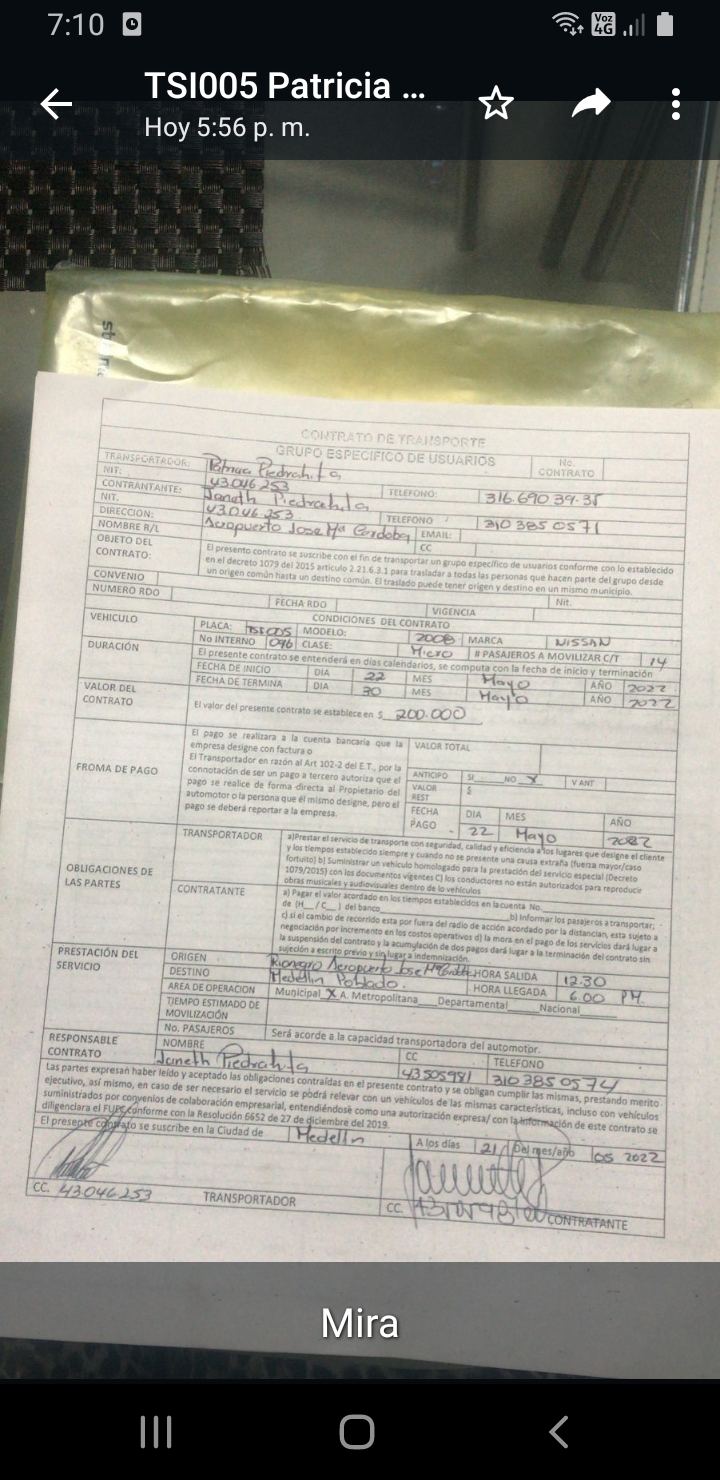 7:10
Voz
4G
TSI005 Patricia ...
Hoy 5:56 p. m.
CONTRATO DE TRANSPORTE
GRUPO ESPECIFICO DE USUARIOS
No. CONTRATO
TRANSPORTADOR: Patricia Piedrahita
NIT: 43.046.253 TELEFONO: 316.690 39.35
CONTRANTANTE: Janeth Piedrahita
NIT. 43.046.253 TELEFONO 310 385 0571
DIRECCION: Aeropuerto Jose Mª Cordoba EMAIL:
NOMBRE R/L CC
OBJETO DEL CONTRATO: El presente contrato se suscribe con el fin de transportar un grupo especifico de usuarios conforme con lo establecido
en el decreto 1079 del 2015 articulo 2.21.6.3.1 para trasladar a todas las personas que hacen parte del grupo desde
un origen común hasta un destino común. El traslado puede tener origen y destino en un mismo municipio.
CONVENIO Nit.
NUMERO RDO FECHA RDO VIGENCIA
CONDICIONES DEL CONTRATO
VEHICULO PLACA: TSI005 MODELO: 2008 MARCA NISSAN
No INTERNO 046 CLASE: Micro # PASAJEROS A MOVILIZAR C/T 14
DURACIÓN El presente contrato se entenderá en días calendarios, se computa con la fecha de inicio y terminación
FECHA DE INICIO DIA 22 MES Mayo AÑO 2022
FECHA DE TERMINA DIA 30 MES Mayo AÑO 2022
VALOR DEL CONTRATO El valor del presente contrato se establece en $ 200.000
FROMA DE PAGO
El pago se realizara a la cuenta bancaria que la
empresa designe con factura o
El Transportador en razón al Art 102-2 del E.T., por la
connotación de ser un pago a tercero autoriza que el
pago se realice de forma directa al Propietario del
automotor o la persona que él mismo designe, pero el
pago se deberá reportar a la empresa.
VALOR TOTAL
ANTICIPO SI___NO X V ANT
VALOR REST $
FECHA PAGO DIA MES AÑO
22 Mayo 2022
OBLIGACIONES DE LAS PARTES
TRANSPORTADOR a)Prestar el servicio de transporte con seguridad, calidad y eficiencia a los lugares que designe el cliente
y los tiempos establecido siempre y cuando no se presente una causa extraña (fuerza mayor/caso
fortuito) b) Suministrar un vehículo homologado para la prestación del servicio especial (Decreto
1079/2015) con los documentos vigentes C) los conductores no están autorizados para reproducir
obras musicales y audiovisuales dentro de lo vehículos
CONTRATANTE a) Pagar el valor acordado en los tiempos establecidos en la cuenta No.
de (H__/C__) del banco b) Informar los pasajeros a transportar;
c) si el cambio de recorrido esta por fuera del radio de acción acordado por la distancian, esta sujeto a
negociación por incremento en los costos operativos d) la mora en el pago de los servicios dará lugar a
la suspensión del contrato y la acumulación de dos pagos dará lugar a la terminación del contrato sin
sujeción a escrito previo y sin lugar a indemnización.
PRESTACIÓN DEL SERVICIO
ORIGEN Rionegro Aeropuerto Jose Mª Cordoba HORA SALIDA 12:30
DESTINO Medellin Poblado. HORA LLEGADA 6:00 PM.
AREA DE OPERACION Municipal X A. Metropolitana___Departamental___Nacional___
TIEMPO ESTIMADO DE MOVILIZACIÓN
No. PASAJEROS Será acorde a la capacidad transportadora del automotor.
RESPONSABLE CONTRATO NOMBRE CC TELEFONO
Janeth Piedrahita 43505981 310 385 0574
Las partes expresan haber leído y aceptado las obligaciones contraídas en el presente contrato y se obligan cumplir las mismas, prestando merito
ejecutivo, así mismo, en caso de ser necesario el servicio se podrá relevar con un vehículos de las mismas características, incluso con vehículos
suministrados por convenios de colaboración empresarial, entendiéndose como una autorización expresa/ con la información de este contrato se
diligenciara el FUEC conforme con la Resolución 6652 de 27 de diciembre del 2019.
El presente contrato se suscribe en la Ciudad de Medellin A los días 21 Del mes/año 05 2022
CC. 43.046.253 TRANSPORTADOR
CC. CONTRATANTE
Mira